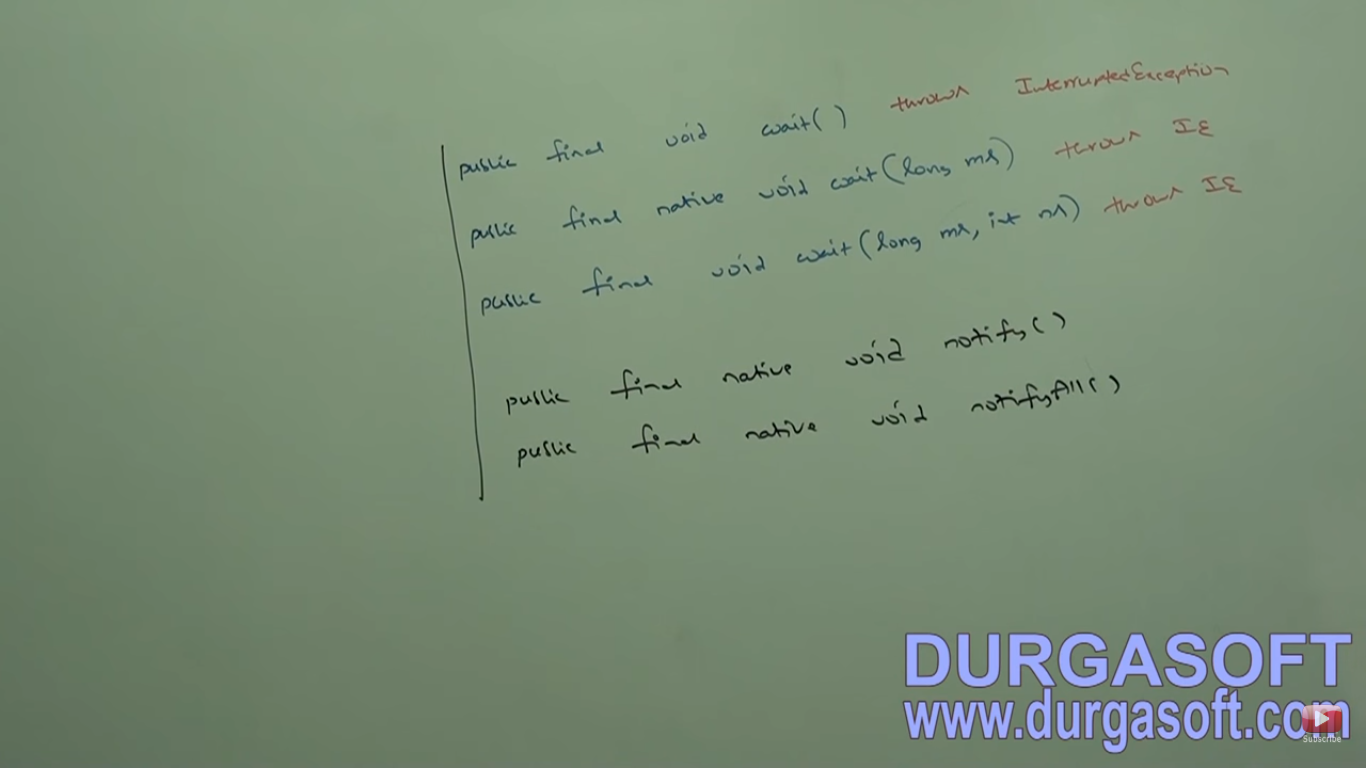 public final void wait() throws InterruptedException
public final native void wait(long ms) throws IE
public final void wait(long ms, int ns) throws IE
public final native void notify()
public final native void notifyAll()
DURGASOFT
www.durgasoft.com
Subscribe